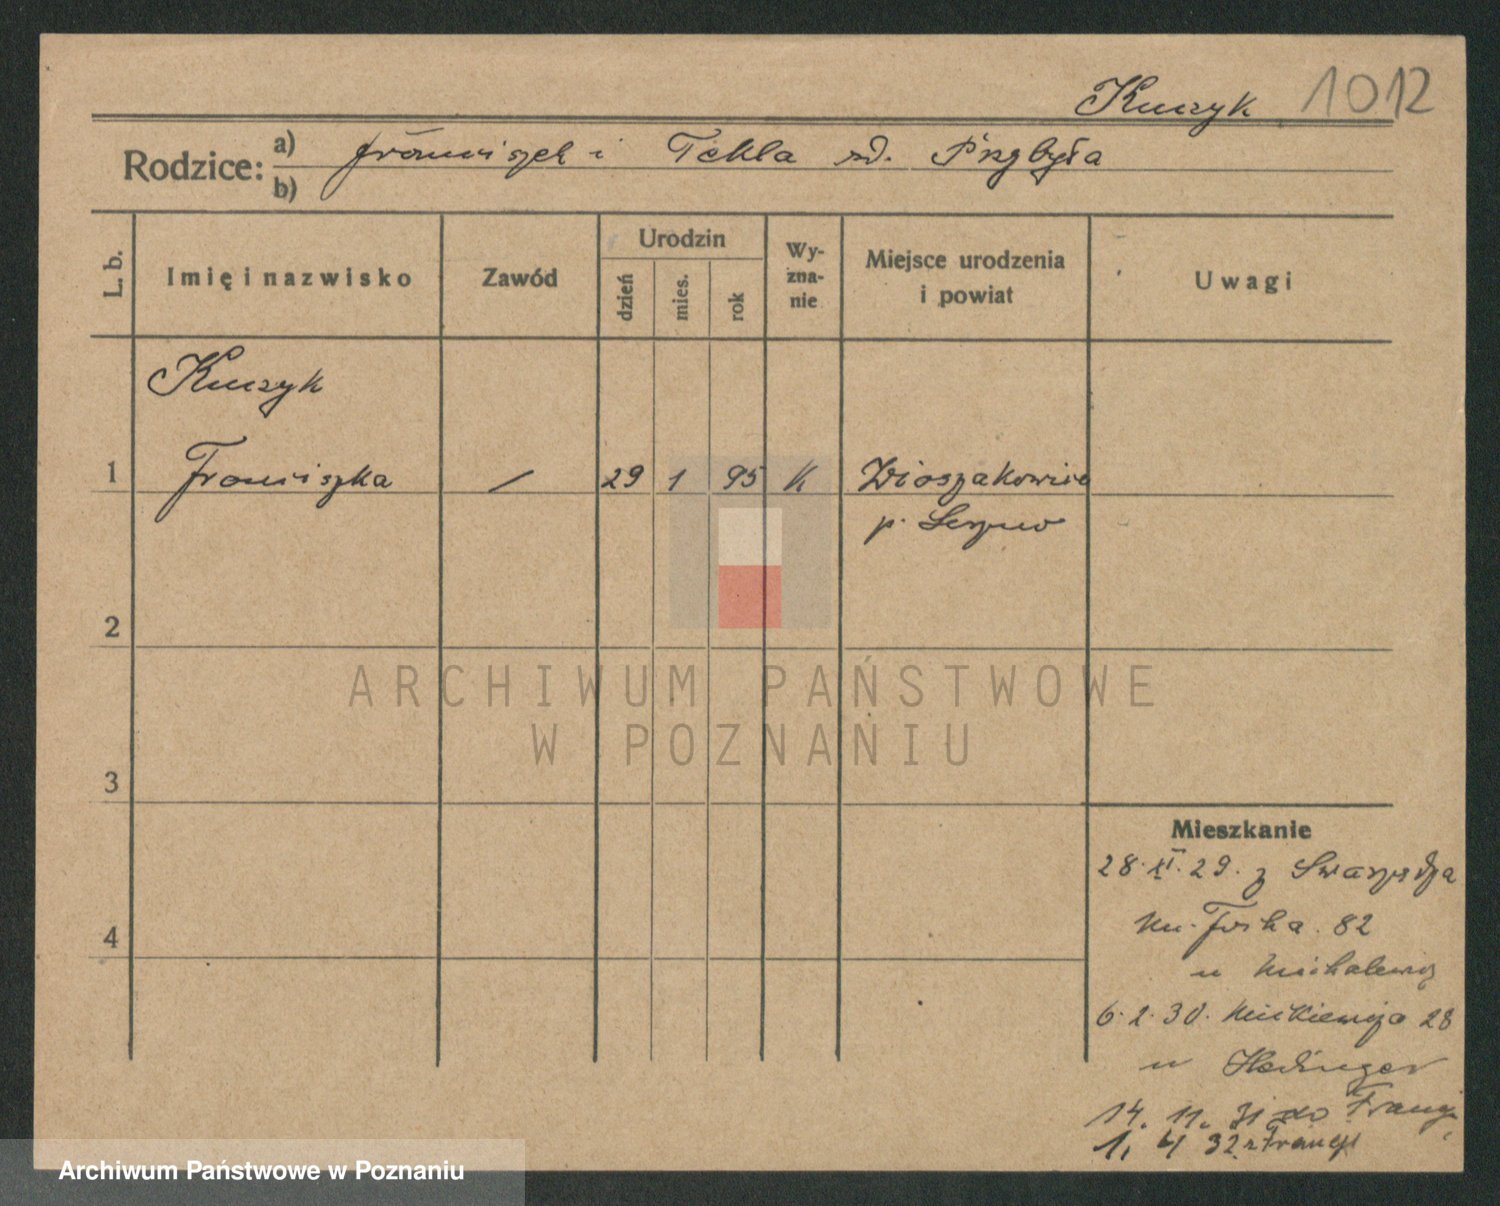 Kuczyk 1012
Rodzice: a) Franciszek i Tekla zd. Przybyła
b)
L. b.
Imię i nazwisko
Zawód
Urodzin
dzień
mies.
rok
Wy-
zna-
nie
Miejsce urodzenia
i powiat
Uwagi
Kuczyk
1 Franciszka / 29 1 95 K Włoszakowice
p. Leszno
2
3
4
ARCHIWUM PAŃSTWOWE
W POZNANIU
Mieszkanie
28. XI. 29. z Swarzędza
82
u Michalewicz
6. 2. 30. Mickiewicza 28
u Hedinger
14. 11. 31 do Francji
1. 4 32 z Francji
Archiwum Państwowe w Poznaniu